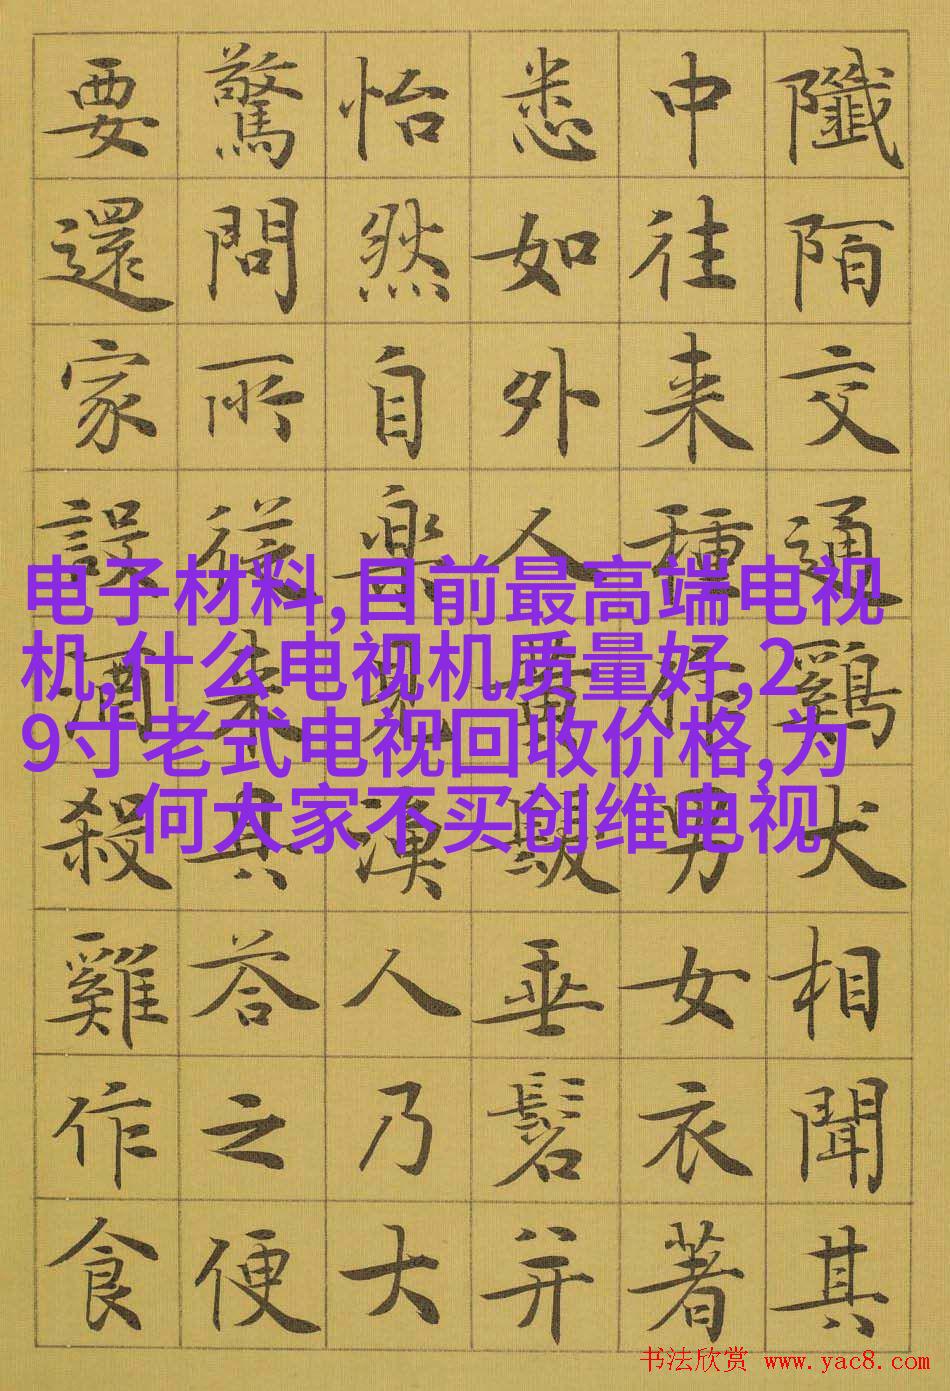 陌交通鷄犬相聞其
中往来種作男女衣著
悉如外人黄髮垂髫并
怡然自樂見漁人乃大
驚問所從来具答之便
要還家設酒殺雞作食
电子材料,目前最高端电视
机,什么电视机质量好,2
9寸老式电视回收价格,为
何大家不买创维电视
书法欣赏 www.yac8.com